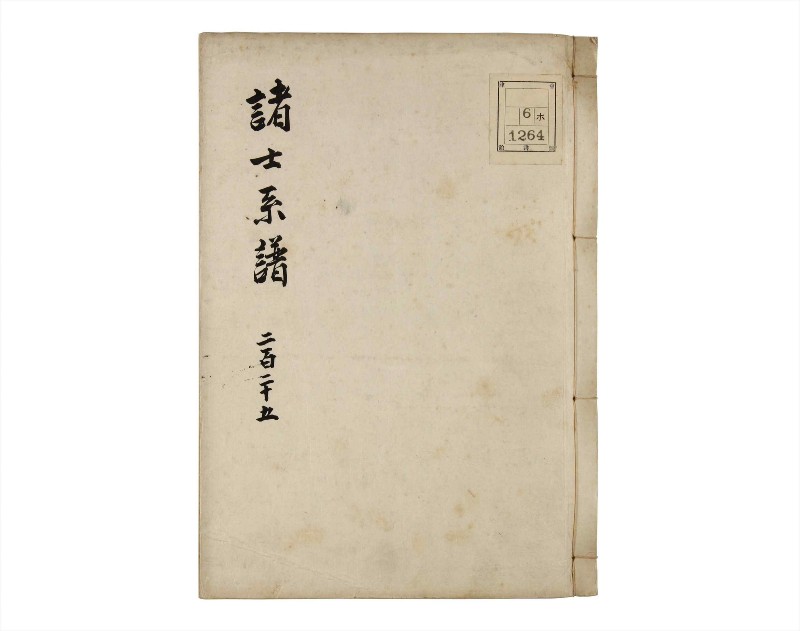 諸士系譜
二百二十五
6 ホ
1264